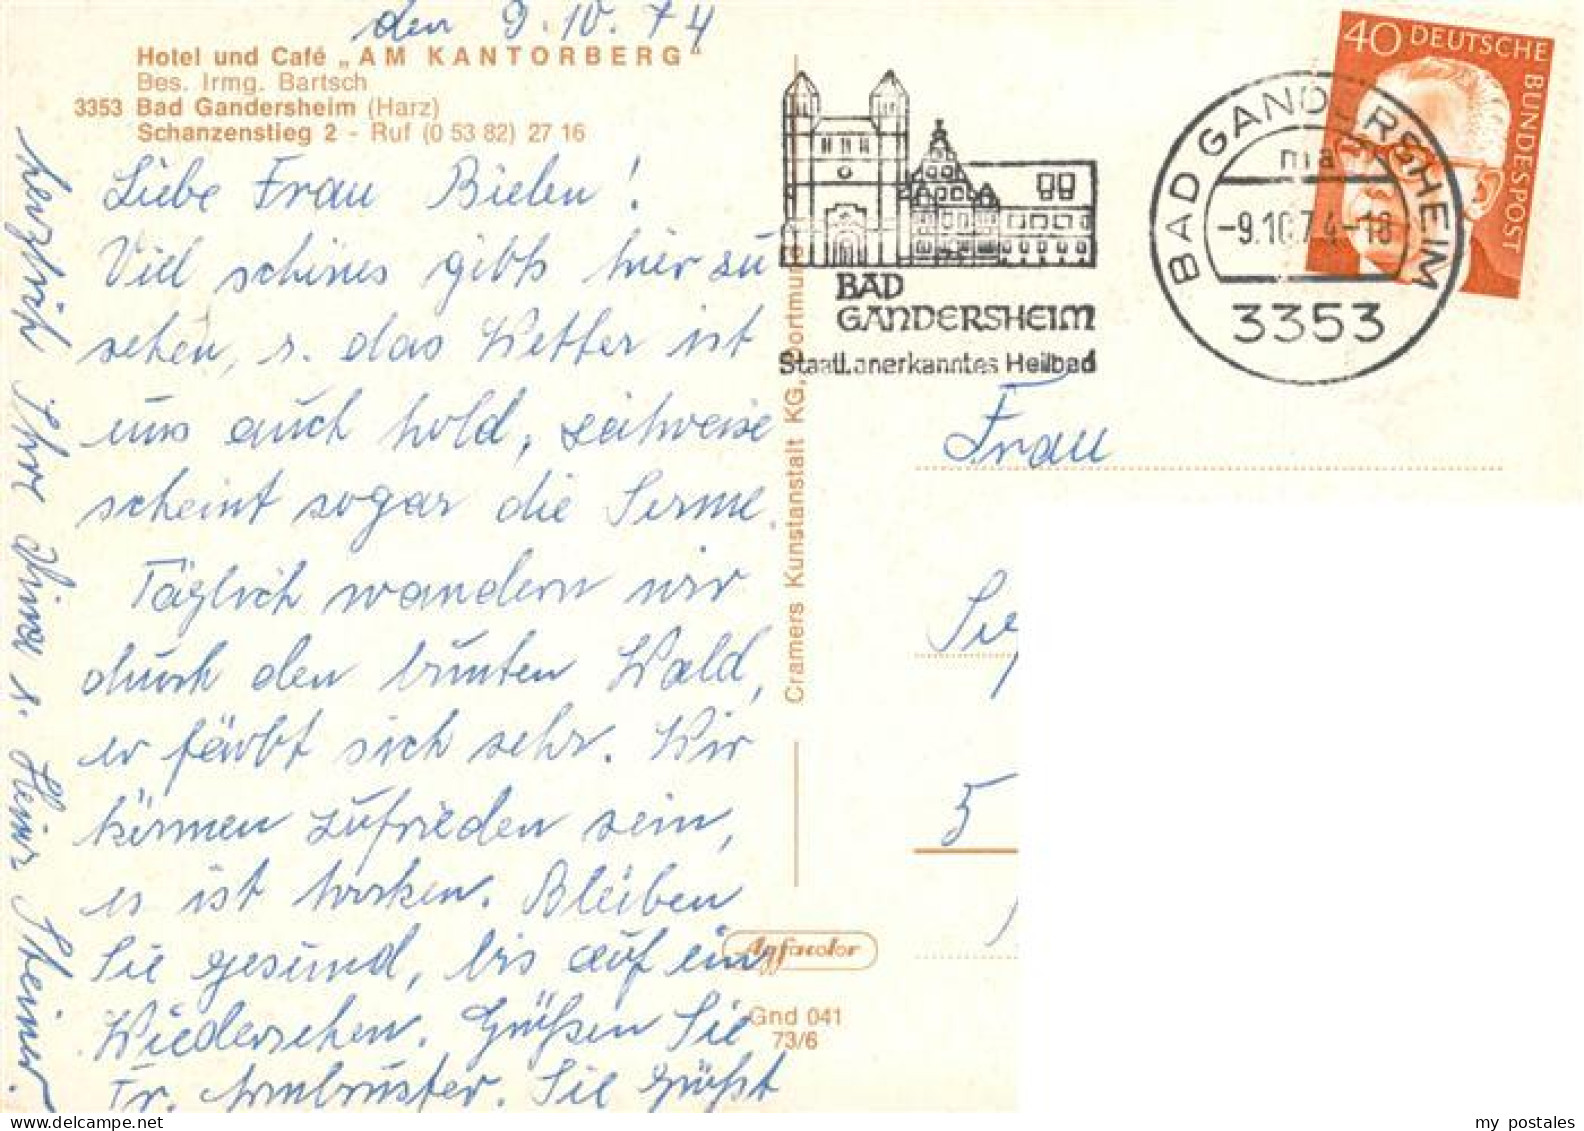 den 9.10.74
Hotel und Café „AM KANTORBERG"
Bes. Irmg. Bartsch
3353 Bad Gandersheim (Harz)
Schanzenstieg 2 - Ruf (0 53 82) 27 16
Liebe Frau Bielen!
Viel schönes gibts hier zu
sehen, u. das Wetter ist
uns auch hold, zeitweise
scheint sogar die Sonne.
Täglich wandern wir
durch den bunten Wald,
er färbt sich sehr. Wir
können zufrieden sein,
es ist trocken. Bleiben
Sie gesund, bis auf ein
Wiedersehen. Grüßen Sie
Fr. Armbruster. Sie grüßt
herzlich Ihre Änne u. Heinr Steiner.
Cramers Kunstanstalt KG, Dortmund
Agfacolor
Gnd 041
73/6
BAD
GANDERSHEIM
Staatl. anerkanntes Heilbad
BAD GANDERSHEIM
ma
-9.10.74-18
3353
40 DEUTSCHE BUNDESPOST
Frau
5
my postales